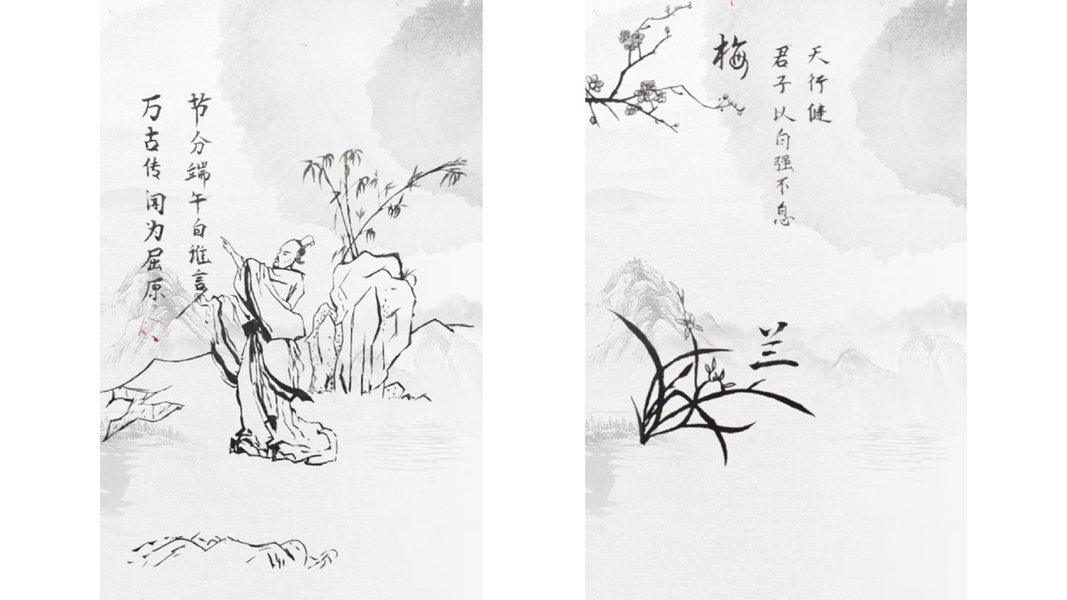 节分端午自谁言
万古传闻为屈原
天行健
君子以自强不息
梅
兰